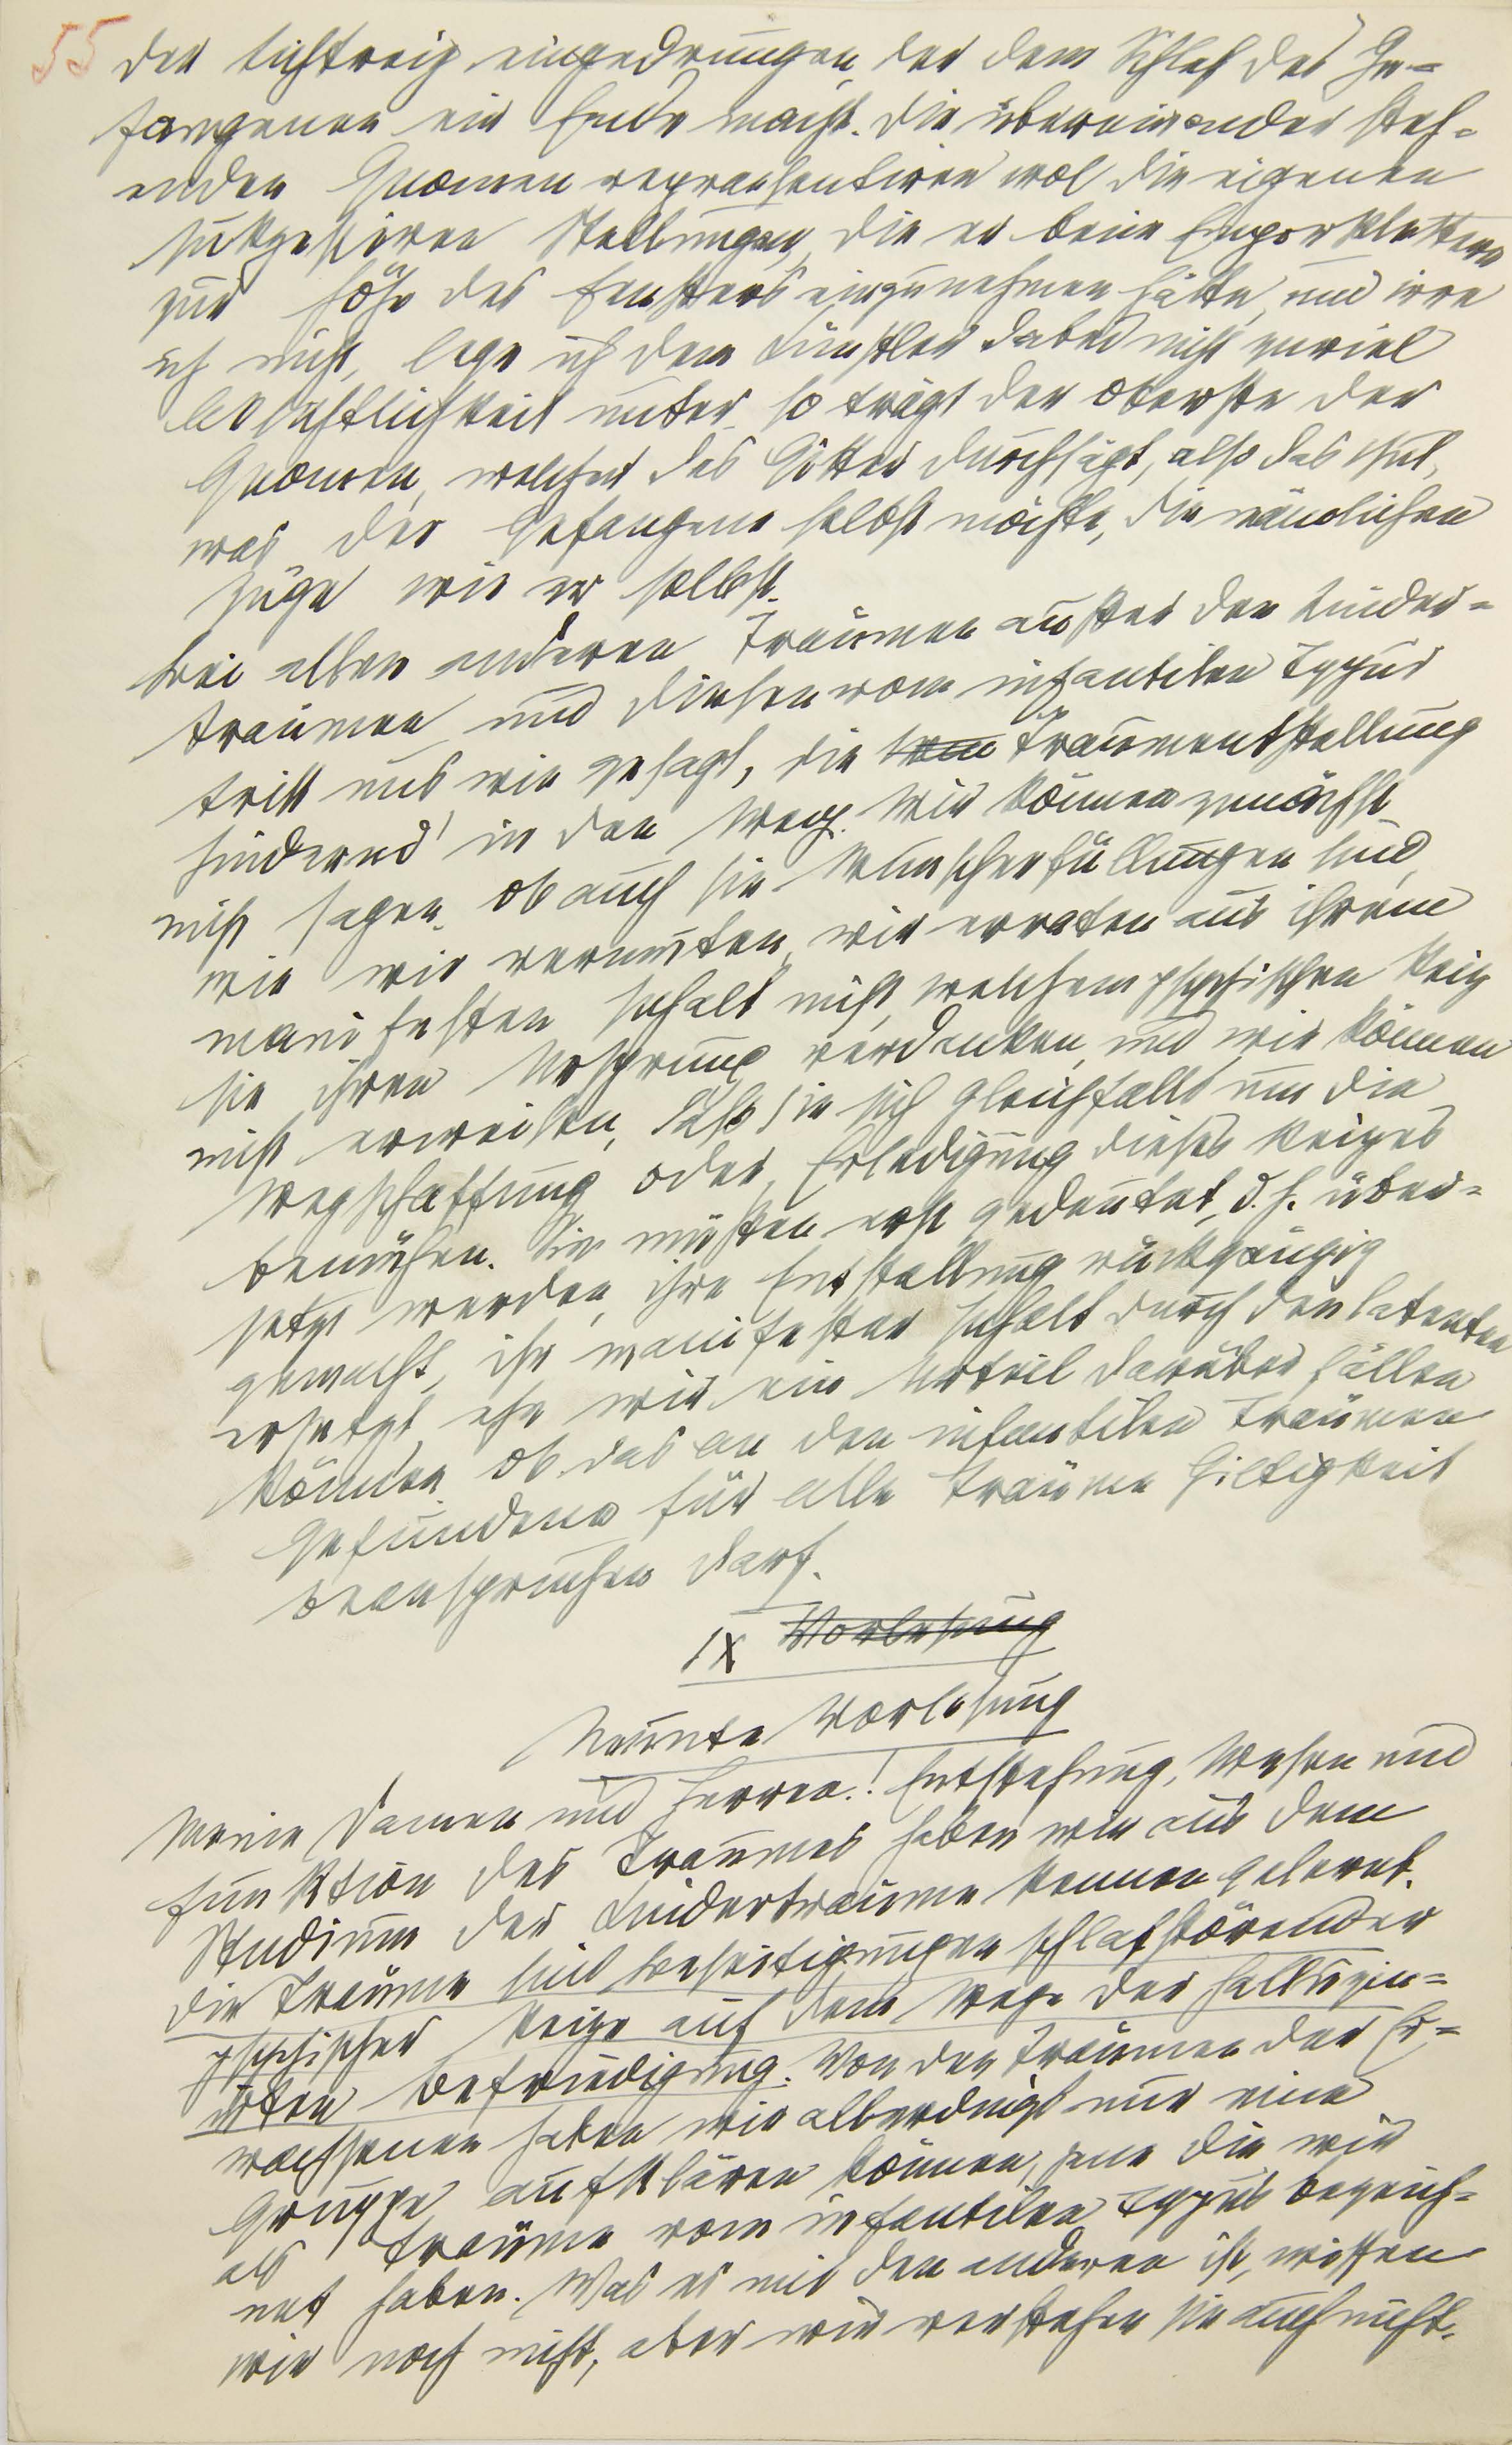 55
der Lichtreiz eingedrungen, der dem Schlaf des Ge-
fangenen ein Ende macht. Die übereinander steh-
enden Gnomen repraesentiren wol die eigenen
sukzessiven Stellungen, die er beim Emporklettern
zur Höhe des Fensters einzunehmen hätte, und irre
ich nicht, lege ich dem Künstler dabei nicht zuviel
Absichtlichkeit unter, so trägt der oberste der
Gnomen, welcher das Gitter durchsägt, also das thut,
was der Gefangene selbst möchte, die nämlichen
Züge wie er selbst.
Bei allen anderen Träumen außer den Kinder-
träumen und diesen vom infantilen Typus
tritt uns wie gesagt, die Traumentstellung
hindernd in den Weg. Wir können zunächst
nicht sagen, ob auch sie Wunscherfüllungen sind,
wie wir vermuten, wir erraten aus ihrem
manifesten Inhalt nicht, welchem psychischen Reiz
sie ihren Ursprung verdanken, und wir können
nicht erweisen, daß sie sich gleichfalls um die
Wegschaffung oder Erledigung dieses Reizes
bemühen. Sie müßten erst gedeutet, d.h. über-
setzt werden, ihre Entstellung rückgängig
gemacht, ihr manifester Inhalt durch den latenten
ersetzt, ehe wir ein Urteil darüber fällen
können, ob das an den infantilen Träumen
Gefundene für alle Träume Giltigkeit
beanspruchen darf.
IX Vorlesung
Neunte Vorlesung
Meine Damen und Herren! Entstehung, Wesen und
Funktion des Traumes haben wir aus dem
Studium der Kinderträume kennen gelernt.
Die Träume sind Beseitigungen schlafstörender
psychischer Reize auf dem Wege der halluzin-
irten Befriedigung. Von den Träumen der Er-
wachsenen haben wir allerdings nur eine
Gruppe aufklären können, jene die wir
als Träume vom infantilen Typus bezeich-
net haben. Was es mit den anderen ist, wissen
wir noch nicht, aber wir verstehen sie auch nicht.